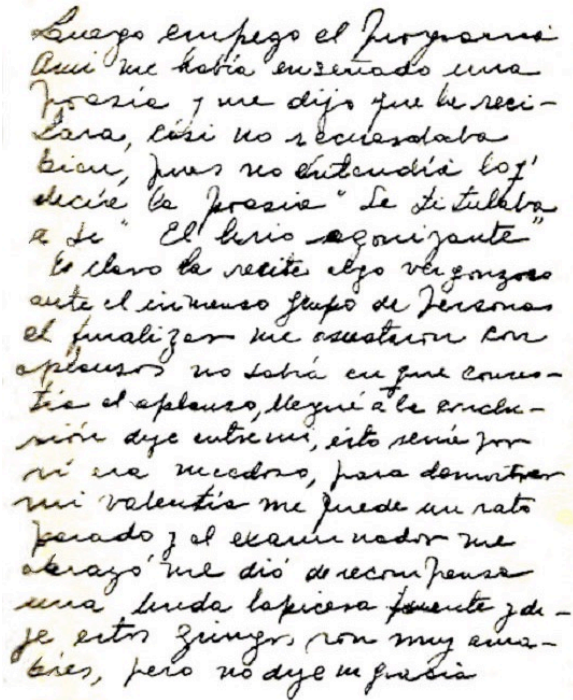 Luego empezo el Programa
Ami me había enseñado una
Poesía y me dijo que la reci-
tara, casi no recuerdaba
bien, pues no entendía lo q'
decía la poesia " Se titulaba
"El lirio agonizante"
Es claro la recite algo vergonzoso
ante el inmenso grupo de Personas
al finalizar me asustaron con
aplausos no sabía en que consis-
tía el aplauso, llegué a la conclu-
sión dije entre mi, esto sería por
si era miedoso, para demostrar
mi valentía me quede un rato
parado y el examinador me
abrazó me dió de recompensa
una linda lapicera fuente y di-
je estos gringos son muy ama-
bles, pero no dije ni gracia